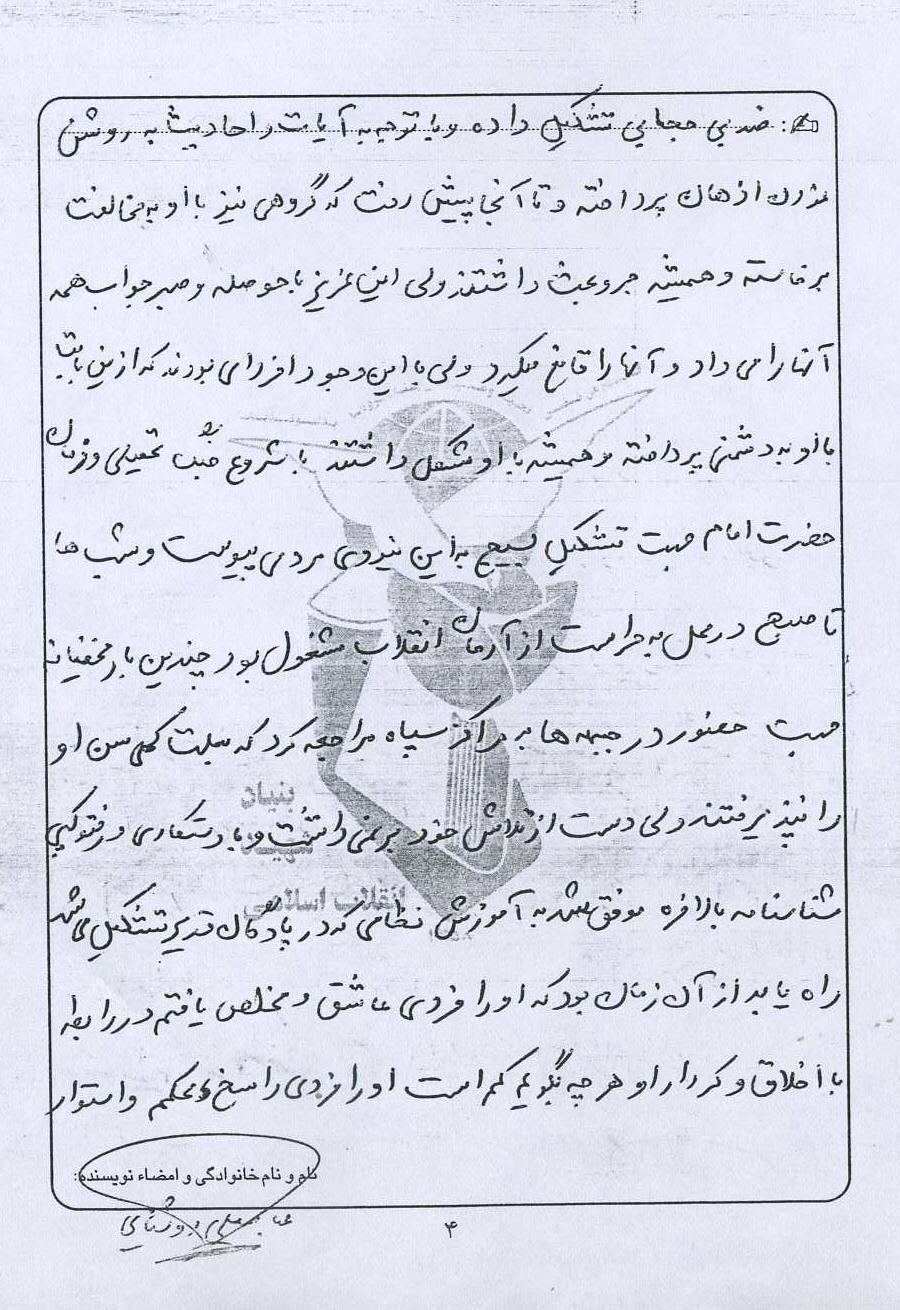 : ضد بی حجابی تشکیل داده و با توجه به آیات و احادیث به روشن
نمودن اذهان پرداخته و تا آنجا پیش رفت که گروهی نیز با او به مخالفت
برخاسته و همیشه جر و بحث داشتند ولی این عزیز با حوصله و صبر جواب همه
آنها را می داد و آنها را قانع میکرد ولی با این وجود افرادی بودند که از این بابت
با او به دشمنی پرداخته و همیشه با او مشکل داشتند با شروع جنگ تحمیلی و فرمان
حضرت امام جهت تشکیل بسیج به این نیروی مردمی پیوست و شب ها
تا صبح در محل به حراست از آرمان انقلاب مشغول بود چندین بار مخفیانه
جهت حضور در جبهه ها به مراکز سپاه مراجعه کرد که بعلت کمی سن او
را نپذیرفتند ولی دست از تلاش خود بر نمی داشت و با دستکاری در فتوکپی
شناسنامه بالاخره موفق شد به آموزش نظامی که در پادگان قدیر تشکیل می شد
راه یابد از آن زمان بود که او را فردی عاشق و مخلص یافتم در رابطه
با اخلاق و کردار او هر چه بگویم کم است او را فردی راسخ و محکم و استوار
بنیاد
شهید
انقلاب اسلامی
نام و نام خانوادگی و امضاء نویسنده:
۴